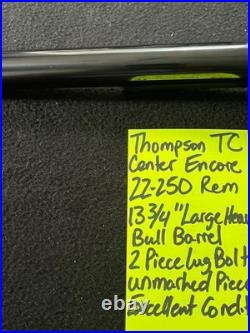 Thompson TC
Center Encore
22-250 Rem
13 3/4" Large Hea
Bull Barrel
2 Piece Lug Bolt
unmarked Piec
Excellent Condi